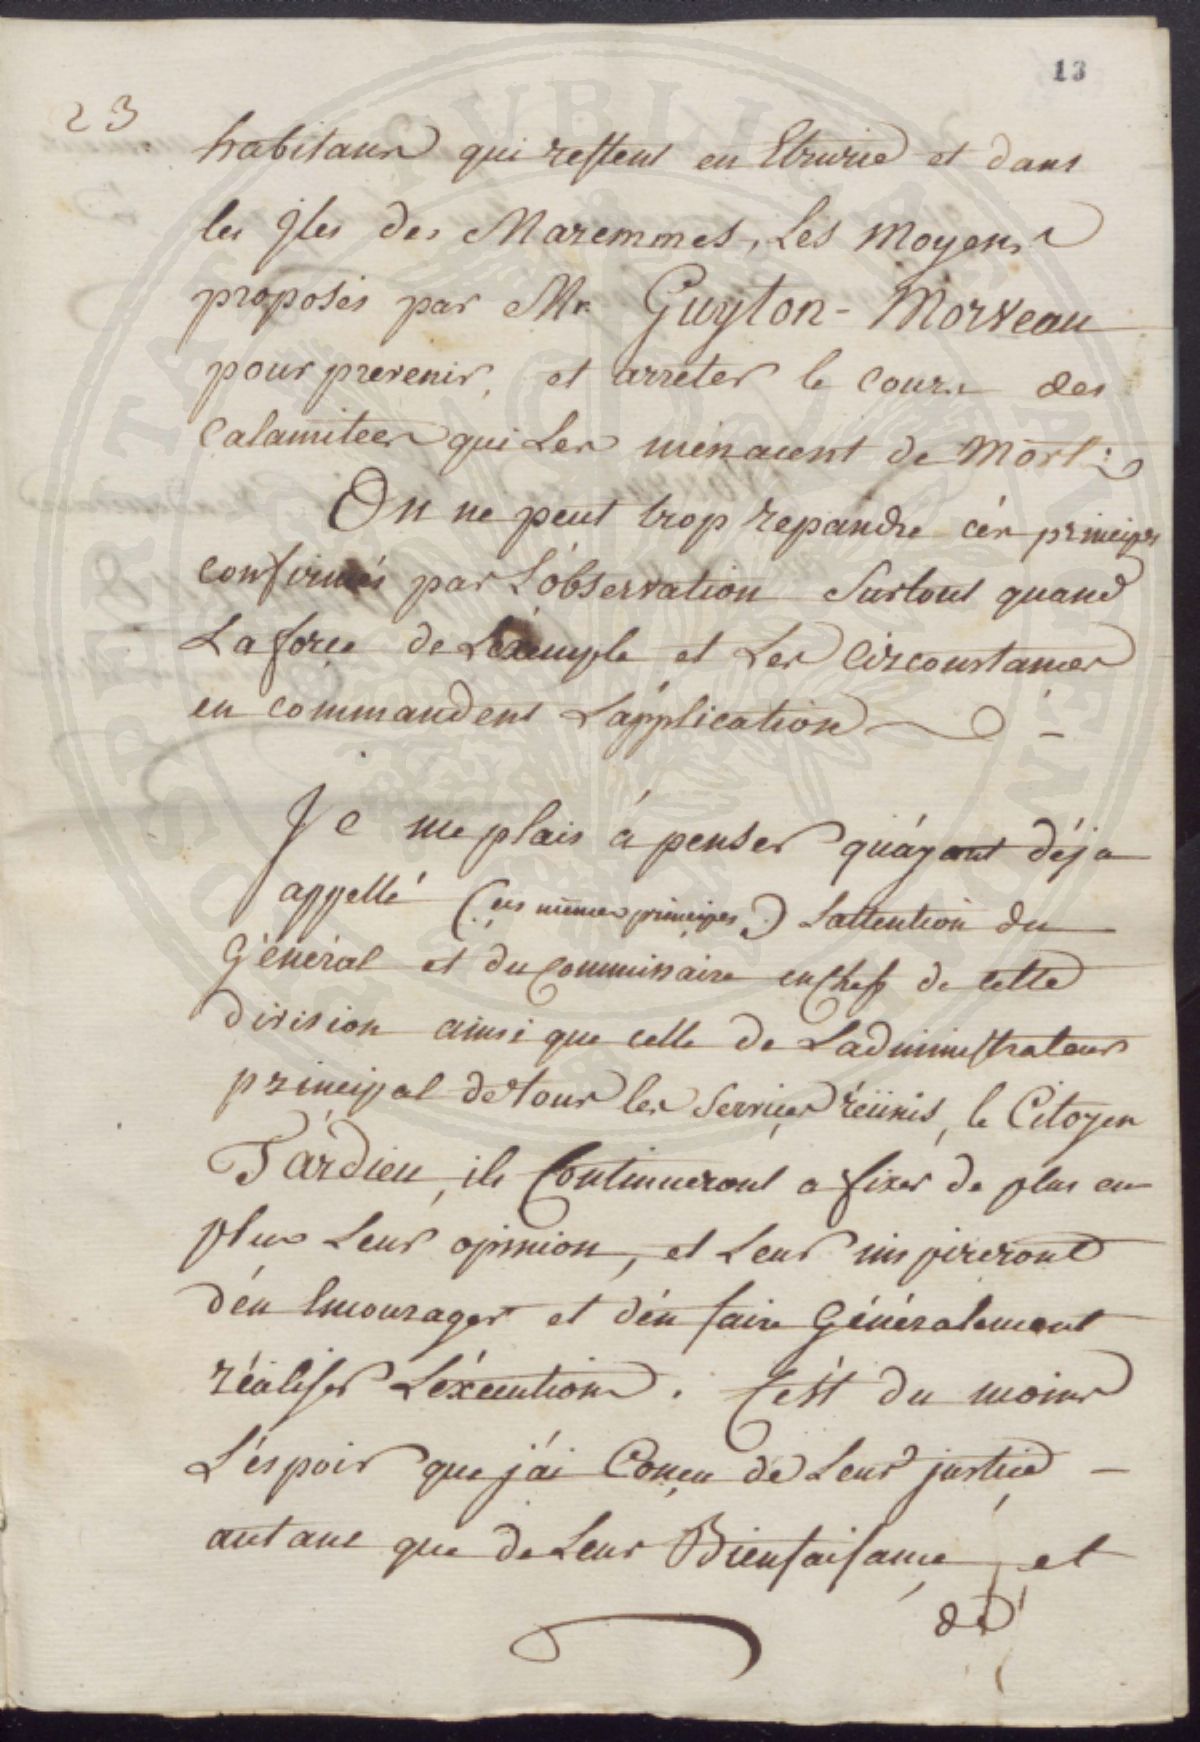 13
23
habitans qui restent en Etrurie et dans
les Isles des Maremmes, Les Moyens
proposés par Mr. Guyton-Morveau
pour prevenir, et arreter le cours des
Calamitées qui Les menacent de Mort:
On ne peut trop repandre cés principes
confirmés par L'óbservation Surtout quand
La force de L'éxemple et Les Circonstances
en commandent L'application
Je me plais á penser qu'áyant déja
appellé (ces mêmes principes) L'attention du
Général et du Commissaire en Chef de cette
division ainsi que celle de L'administrateur
principal de tous les Services réünis, le Citoyen
Tardieu, ils Continueront a fixer de plus en
plus Leur opinion, et Leur inspireront
d'én Encourager et d'én faire Généralement
réaliser L'éxécution. C'est du moins
L'éspoir que j'ái Conçu de Leur justice
autant que de Leur Bienfaisance, et
de